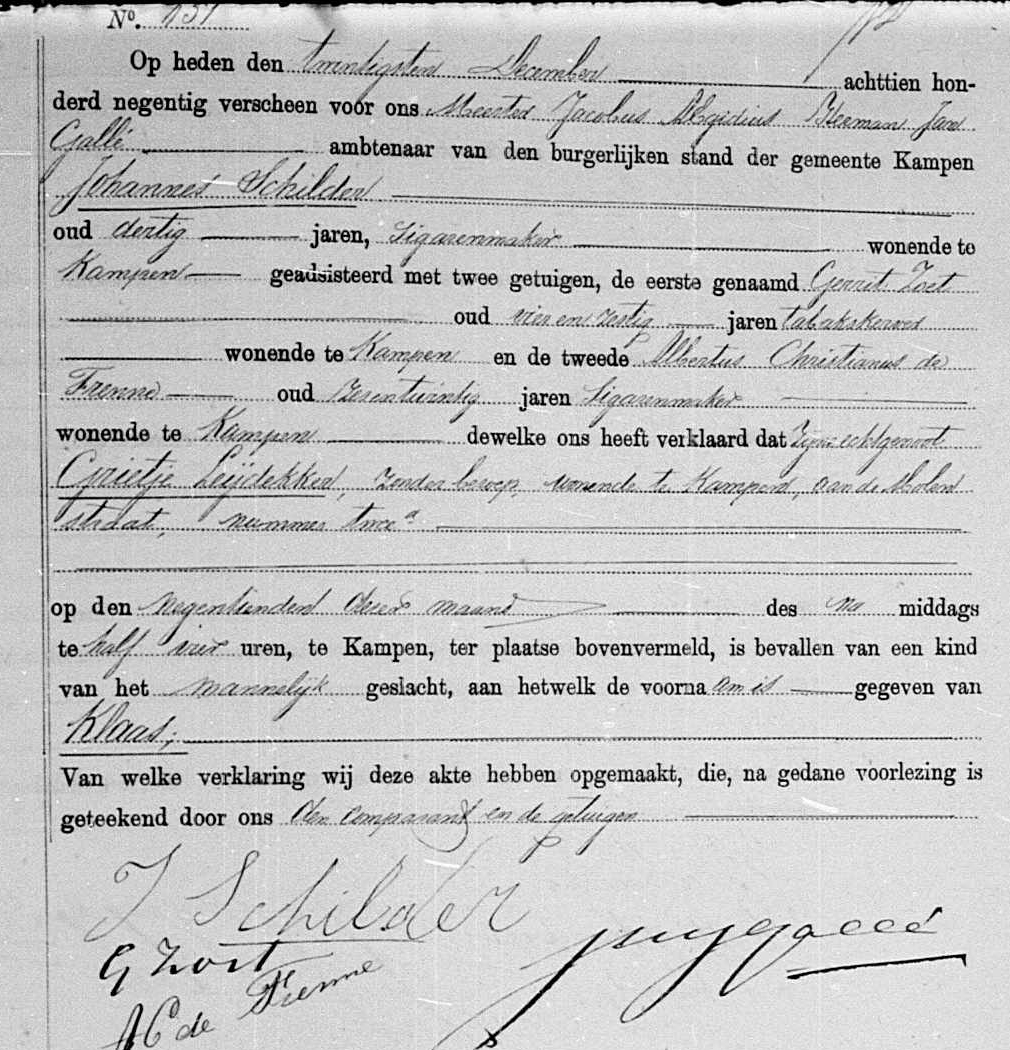 N°. 
Op heden den twintigsten December achttien hon-
derd negentig verscheen voor ons Meester Jacobus Aegidius Herman Jan
Gallé ambtenaar van den burgerlijken stand der gemeente Kampen
Johannes Schilder
oud dertig jaren, sigarenmaker wonende te
Kampen geadsisteerd met twee getuigen, de eerste genaamd Gerrit Zoet
oud vier en zestig jaren tabakskerver
wonende te Kampen en de tweede Albertus Christianus de
Frenne oud zesentwintig jaren sigarenmaker
wonende te Kampen dewelke ons heeft verklaard dat zijne echtgenoot
Grietje Leijdekker, zonder beroep, wonende te Kampen, aan de Molen
straat, nummer twee a
op den negentienden dezer maand des na middags
te half vier uren, te Kampen, ter plaatse bovenvermeld, is bevallen van een kind
van het mannelijk geslacht, aan hetwelk de voornaam is gegeven van
Klaas;
Van welke verklaring wij deze akte hebben opgemaakt, die, na gedane voorlezing is
geteekend door ons den comparant en de getuigen
J Schilder
G Zoet
AC de Frenne